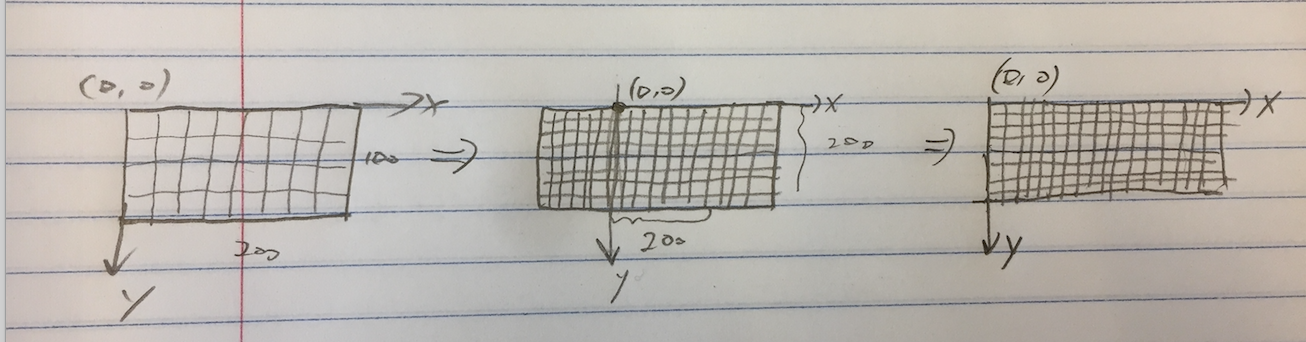 (0,0) X 100 200 Y
⇒
(0,0) X 200 200 Y
⇒
(0,0) X Y